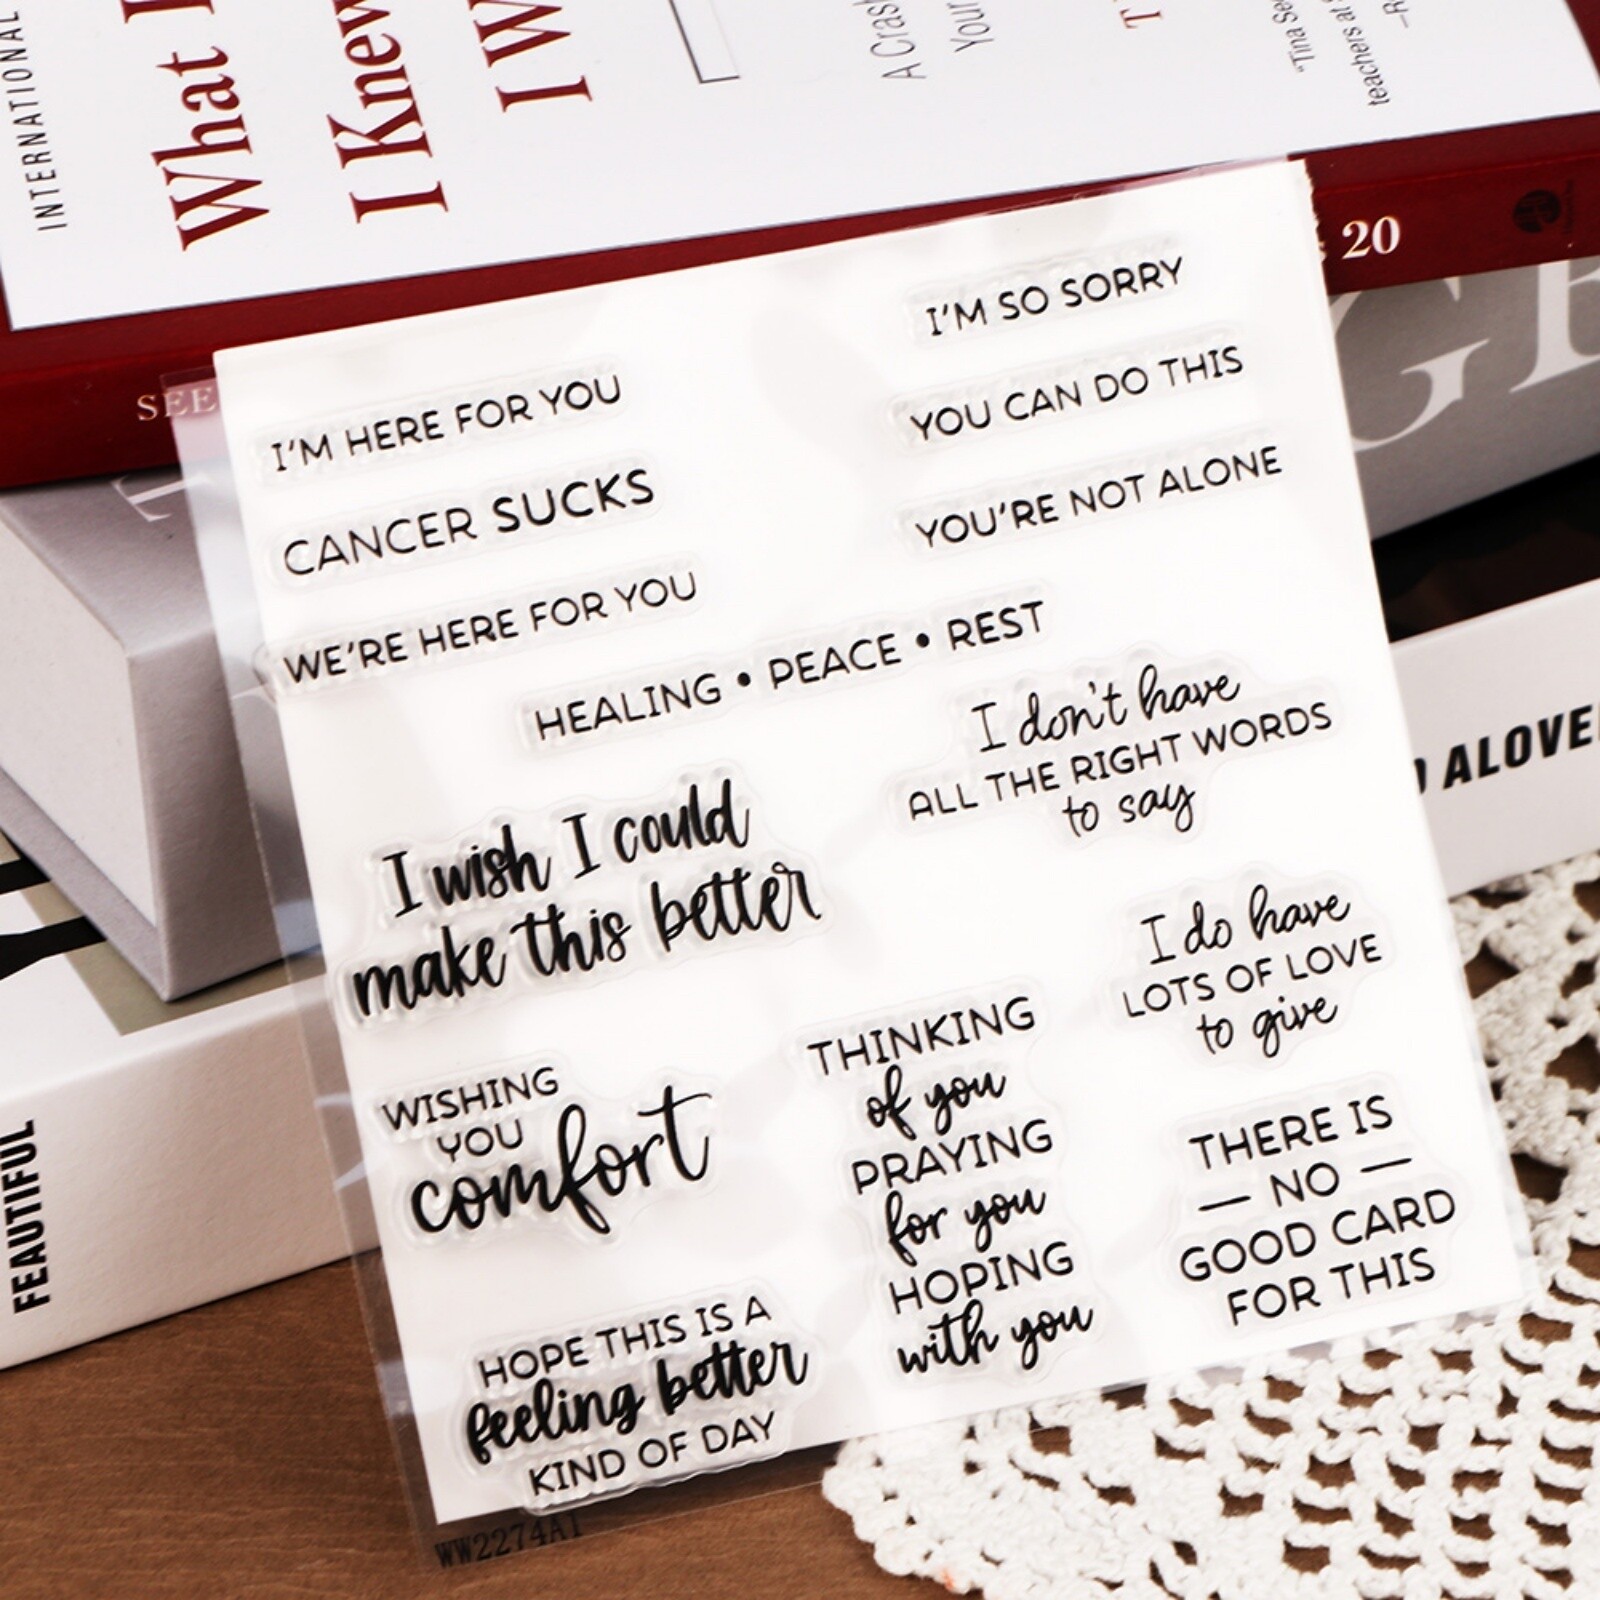 INTERNATIONAL
What
I Knew
I W
A Crash
Your
T
"Tina See
teachers at S
—R
20
SEE
I'M SO SORRY
I'M HERE FOR YOU
YOU CAN DO THIS
CANCER SUCKS
YOU'RE NOT ALONE
WE'RE HERE FOR YOU
HEALING • PEACE • REST
I don't have
ALL THE RIGHT WORDS
to say
I wish I could
make this better
I do have
LOTS OF LOVE
to give
WISHING
YOU
comfort
THINKING
of you
PRAYING
for you
HOPING
with you
THERE IS
— NO —
GOOD CARD
FOR THIS
HOPE THIS IS A
feeling better
KIND OF DAY
WW2274A1
ALOVE
FEAUTIFUL